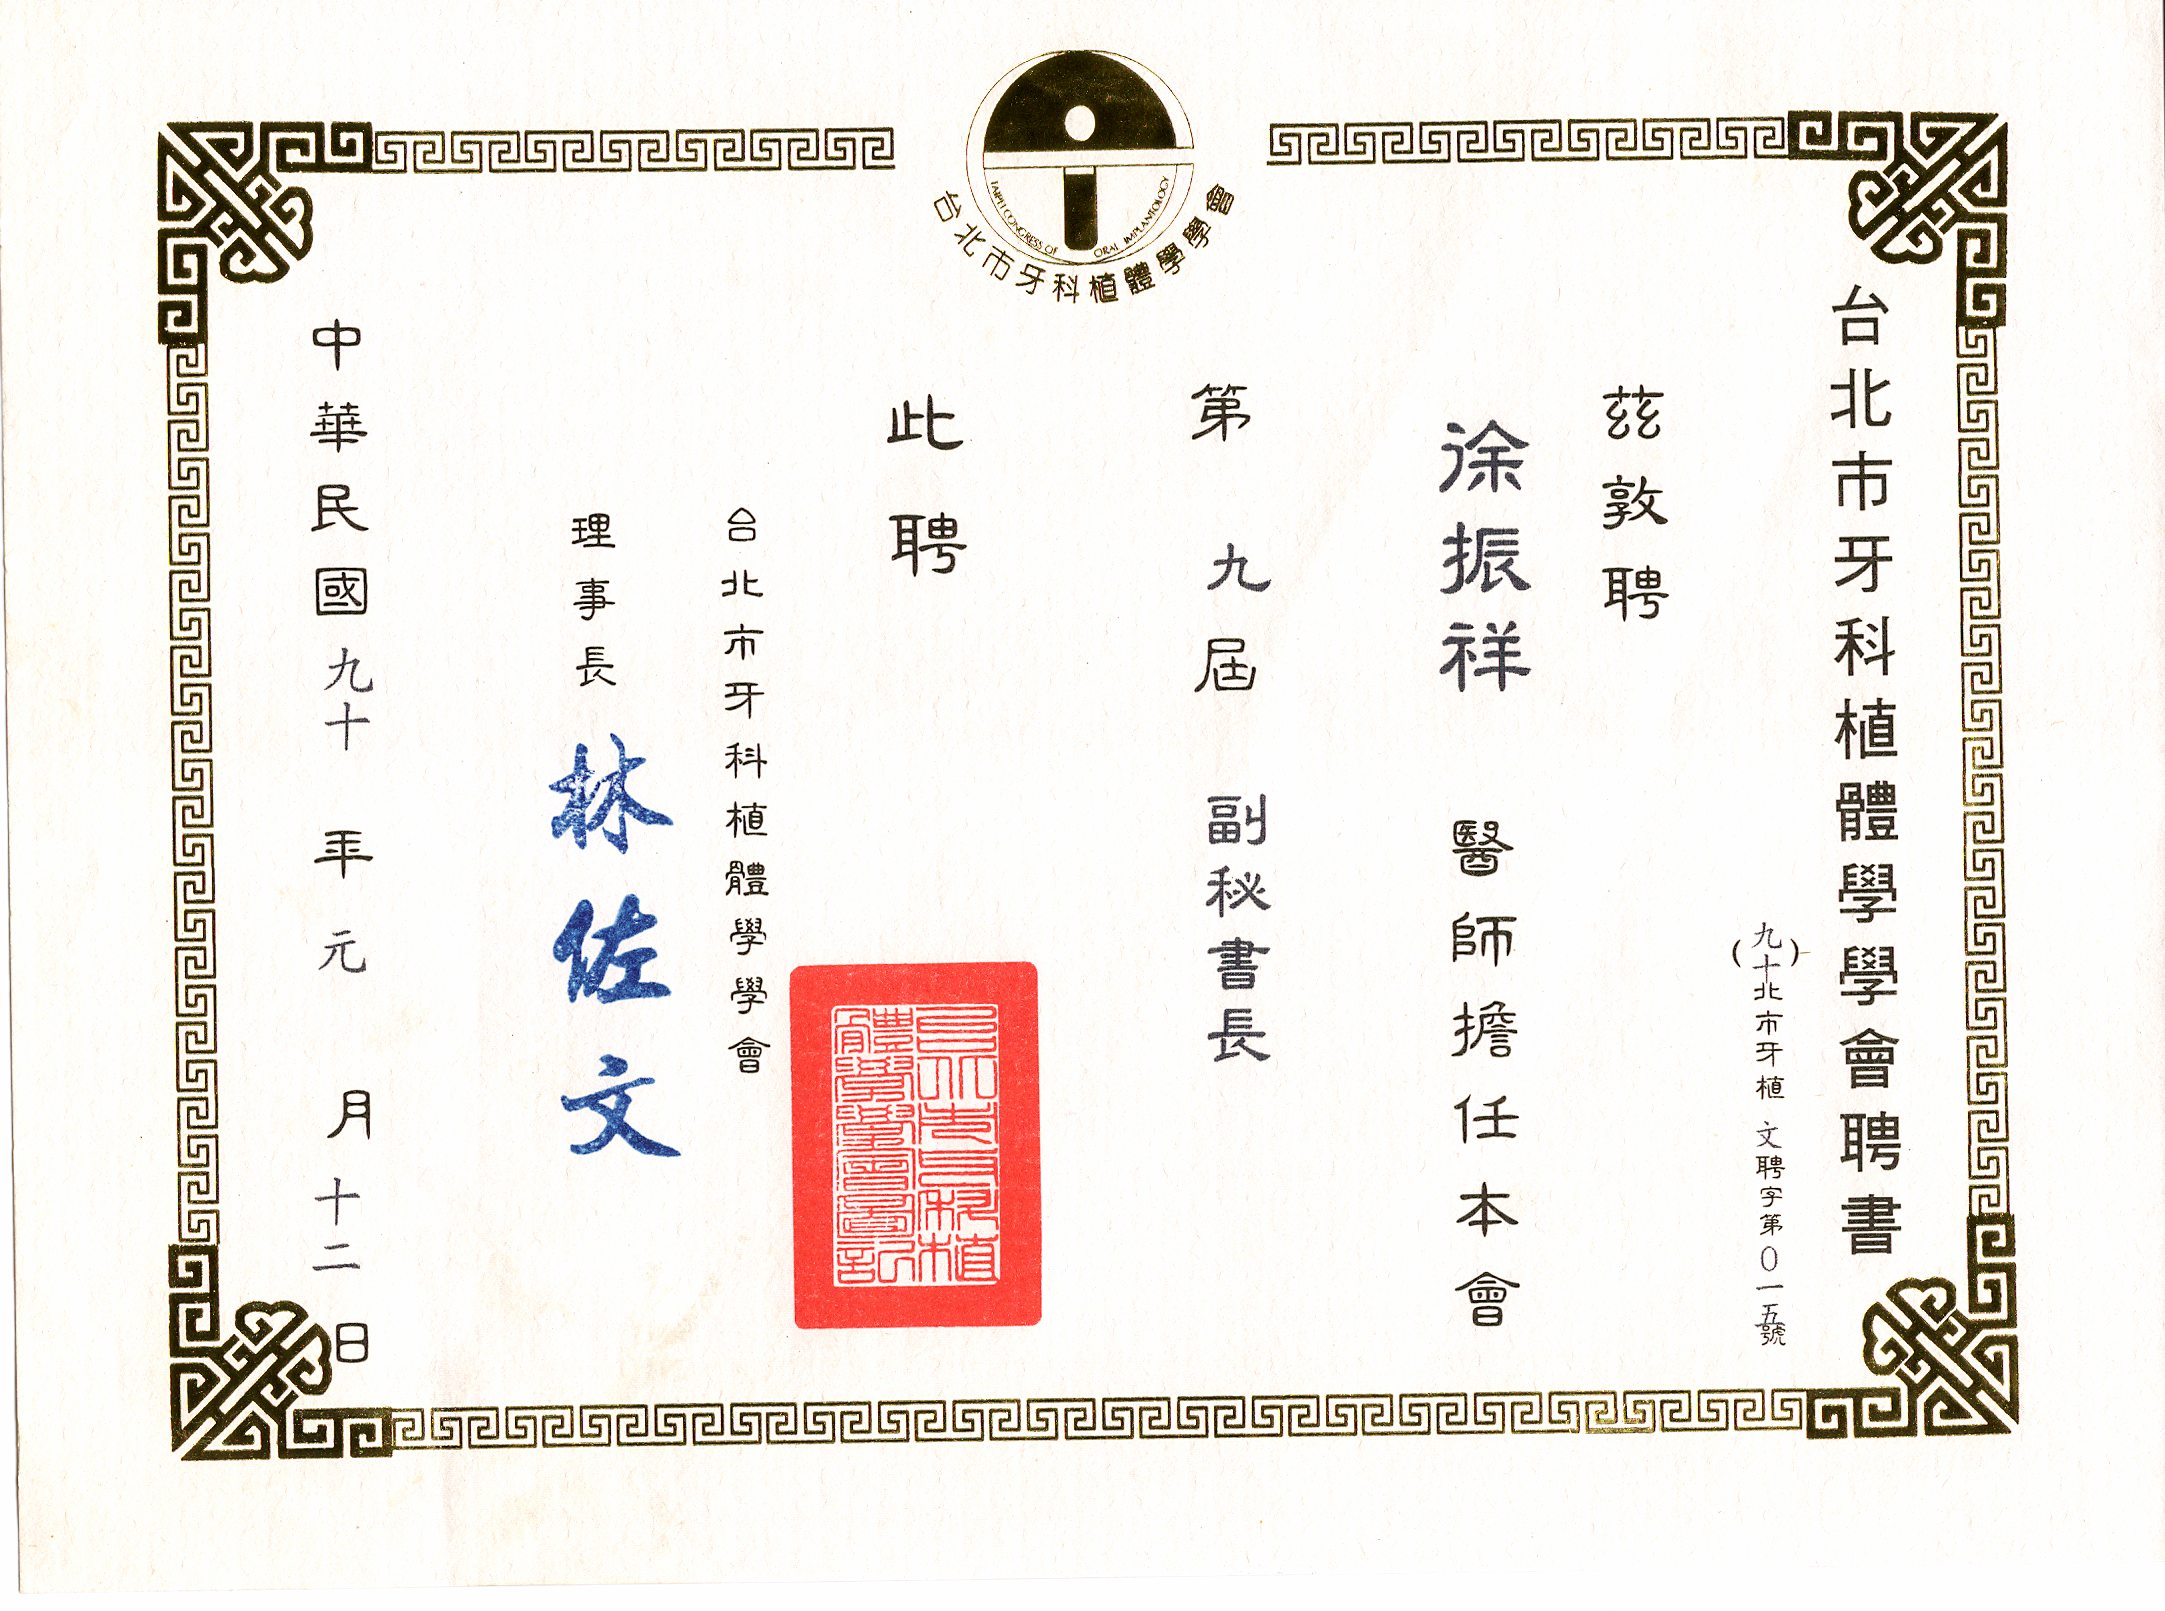 TAIPEI CONGRESS OF ORAL IMPLANTOLOGY
台北市牙科植體學學會
台北市牙科植體學學會聘書
(九十)北市牙植文聘字第0一五號
茲敦聘
徐振祥 醫師擔任本會
第九屆 副秘書長
此聘
台北市牙科植體學學會
理事長 林佐文
中華民國九十年元月十二日
台北市牙科植
體學學會圖記